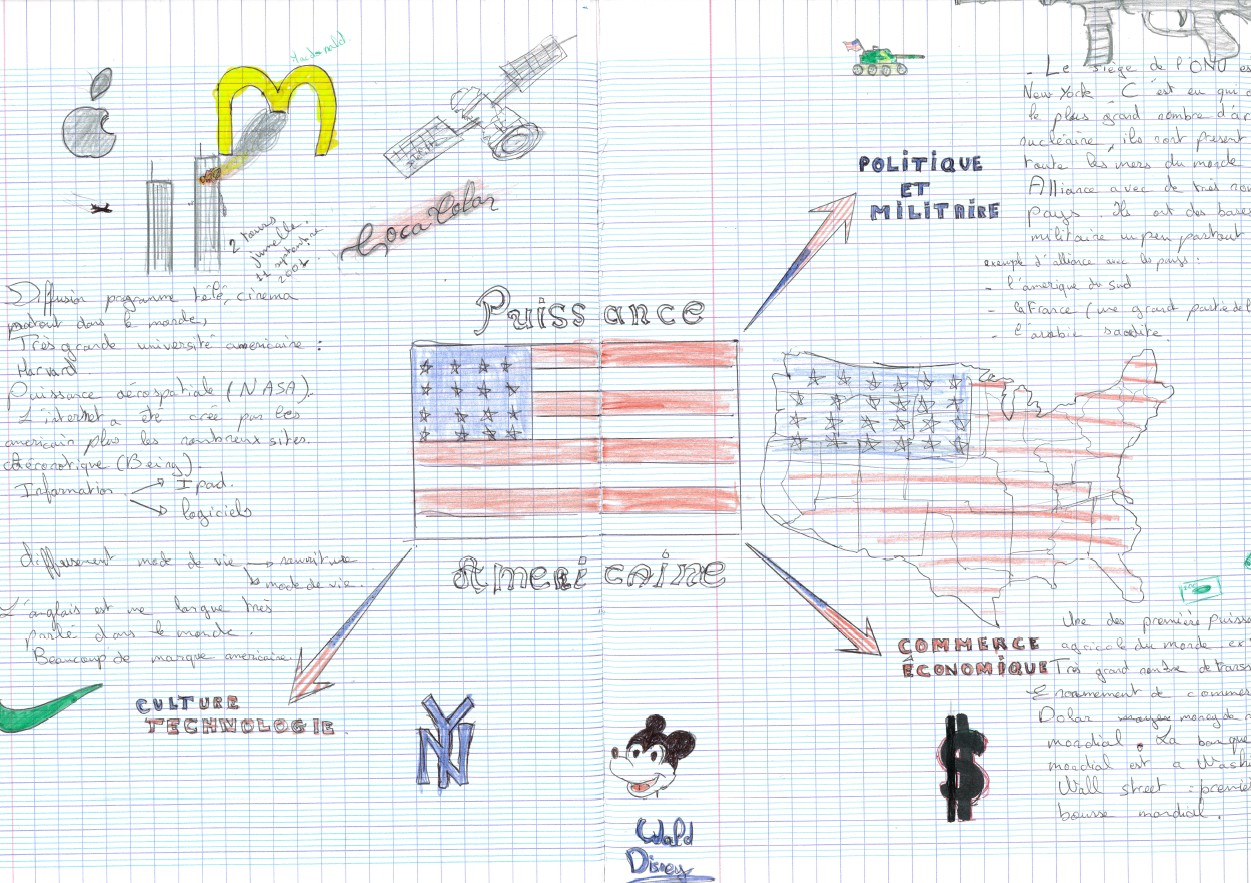 Macdonald
Coca Colar
2 tours
jumelle.
11 septembre
2001.
Diffusion programme télé, cinema
partout dans le monde,
Très grande université americaine :
Harvard.
Puissance aérospatiale (NASA).
L'internet a été crée par les
americain plus les nombreux sites.
aéronotique (Being).
Information
Ipad.
logiciels
diffusement mode de vie
nourriture
mode de vie.
L'anglais est une langue très
parlé dans le monde.
Beaucoup de marque americaine.
CULTURE
TECHNOLOGIE
Puissance
Americaine
NY
Wald
Disney
POLITIQUE
ET
MILITAIRE
- Le siège de l'ONU es
New York C'est eu qui o
le plus grand nombre d'ar
nucléaire, ils sont present
toute les mers du monde
Alliance avec de très no
pays Ils ont des base
militaire un peu partout
exemple d'alliance avec les pays :
- l'amerique du sud
- la France (une grand partie de l
- l'arabie saoudite
COMMERCE
ÉCONOMIQUE
Une des première puissa
agricole du monde ex
Très grand nombre de trans
Enormement de commer
Dolar money de r
mordial. La banque
mondial est a Wash
Wall street : premie
bourse mondial.
$